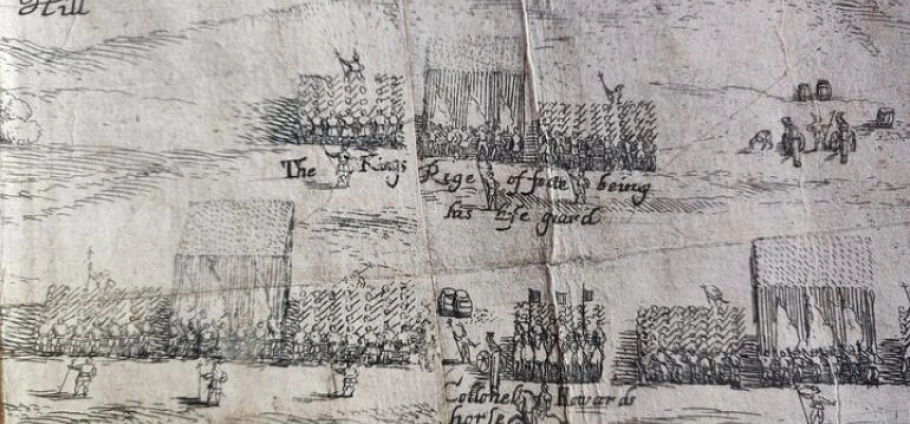 Hill
The Kings Rige of foote being
his life guard
Collonel Howards
horse